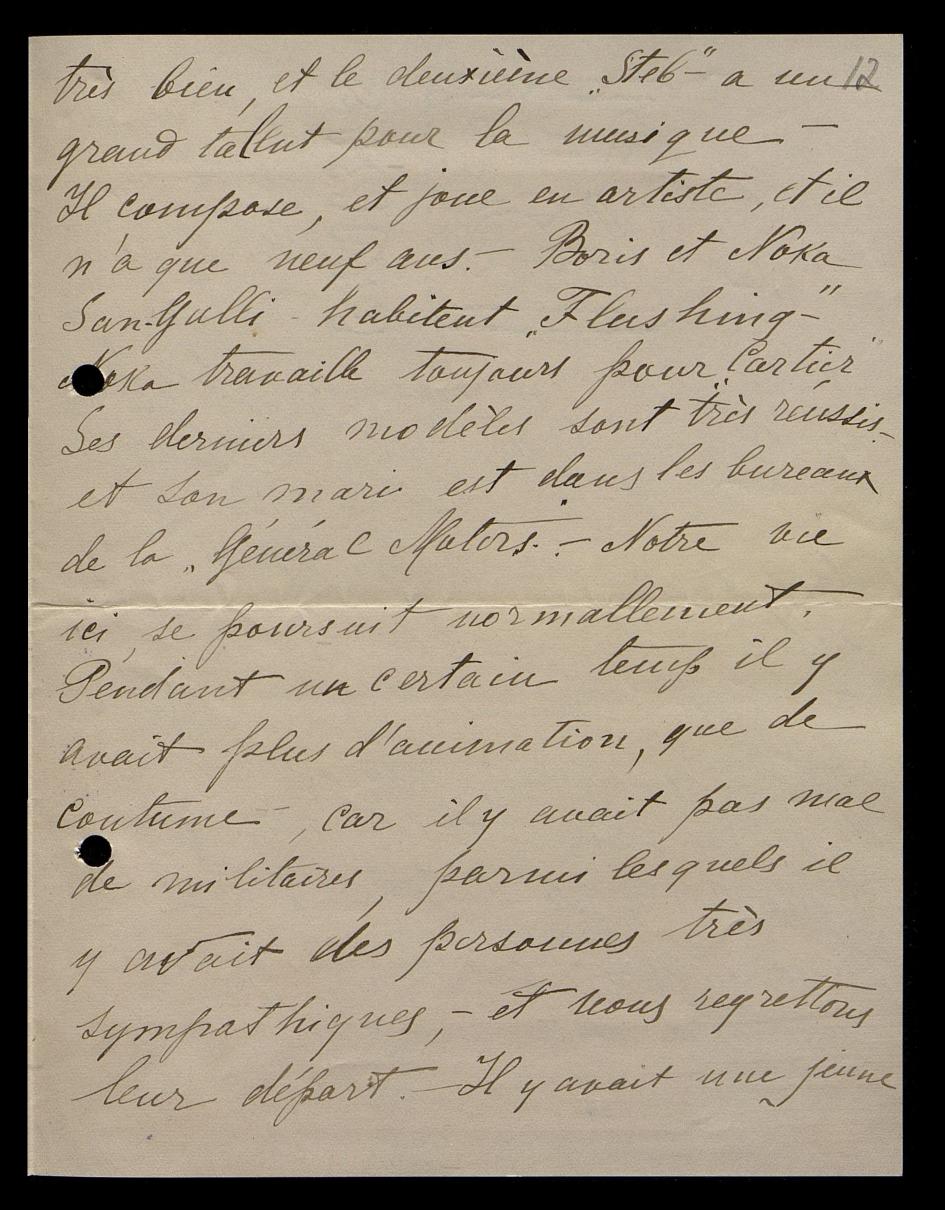 très bien, et le deuxième „Steb-" a un 12
grand tallent pour la musique —
Il compose, et joue en artiste, et il
n'a que neuf ans. — Boris et Noka
San-Galli - habitent „Flushing-"
Noka travaille toujours pour „Cartier"
Ses derniers modèles sont très réussis -
et son mari est dans les bureaux
de la „Général Motors." - Notre vie
ici, se poursuit normallement.
Pendant un certain temps il y
avait plus d'animation, que de
coutume -, car il y avait pas mal
de militaires, parmi lesquels il
y avait des personnes très
sympathiques, - et nous regrettons
leur départ. — Il y avait une jeune